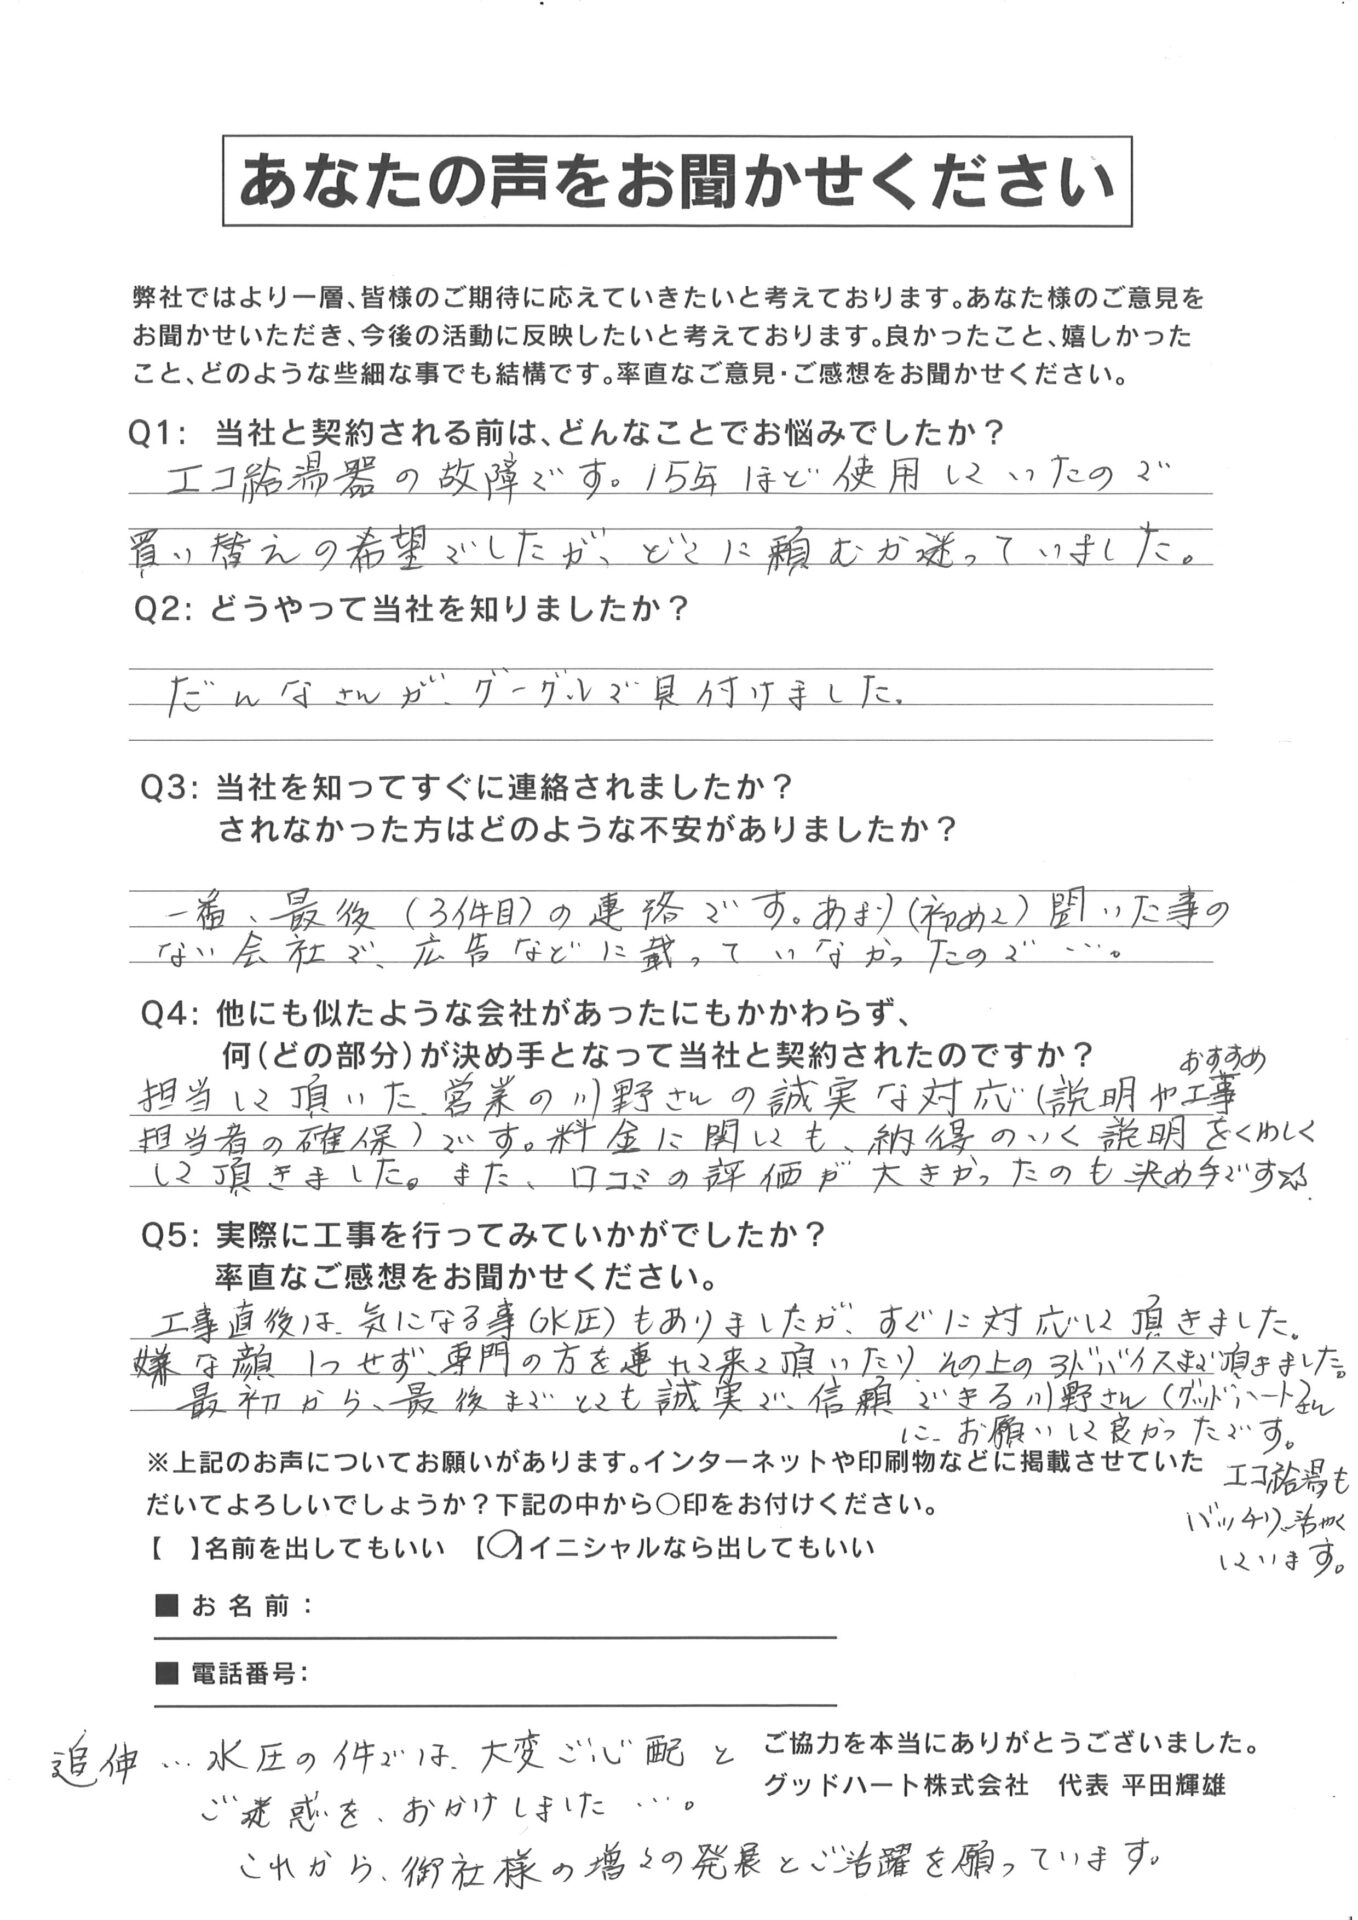 あなたの声をお聞かせください
弊社ではより一層、皆様のご期待に応えていきたいと考えております。あなた様のご意見を
お聞かせいただき、今後の活動に反映したいと考えております。良かったこと、嬉しかった
こと、どのような些細な事でも結構です。率直なご意見・ご感想をお聞かせください。
Q1: 当社と契約される前は、どんなことでお悩みでしたか？
エコ給湯器の故障です。15年ほど使用していたので
買い替えの希望でしたが、どこに頼むか迷っていました。
Q2: どうやって当社を知りましたか？
だんなさんが、グーグルで見付けました。
Q3: 当社を知ってすぐに連絡されましたか？
されなかった方はどのような不安がありましたか？
一番、最後（3件目）の連絡です。あまり（初めて）聞いた事の
ない会社で、広告などに載っていなかったので…。
Q4: 他にも似たような会社があったにもかかわらず、
何（どの部分）が決め手となって当社と契約されたのですか？
おすすめ
担当して頂いた、営業の川野さんの誠実な対応（説明や工事
担当者の確保）です。料金に関しても、納得のいく説明をくわしく
して頂きました。また、口コミの評価が大きかったのも決め手です☆。
Q5: 実際に工事を行ってみていかがでしたか？
率直なご感想をお聞かせください。
工事直後は、気になる事（水圧）もありましたが、すぐに対応して頂きました。
嫌な顔1つせず、専門の方を連れて来て頂いたり、その上のアドバイスまで頂きました。
最初から、最後までとても誠実で、信頼できる川野さん（グッドハートさん）
に、お願いして良かったです。
エコ給湯も
バッチリ、活やく
しています。
※上記のお声についてお願いがあります。インターネットや印刷物などに掲載させていた
だいてよろしいでしょうか？下記の中から○印をお付けください。
【 】名前を出してもいい 【○】イニシャルなら出してもいい
■ お名前：
■ 電話番号：
追伸…水圧の件では、大変ご心配と
ご迷惑を、おかけしました…。
これから、御社様の増々の発展とご活躍を願っています。
ご協力を本当にありがとうございました。
グッドハート株式会社 代表 平田輝雄